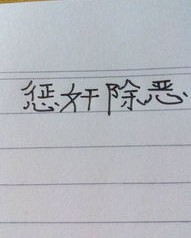 惩奸除恶.